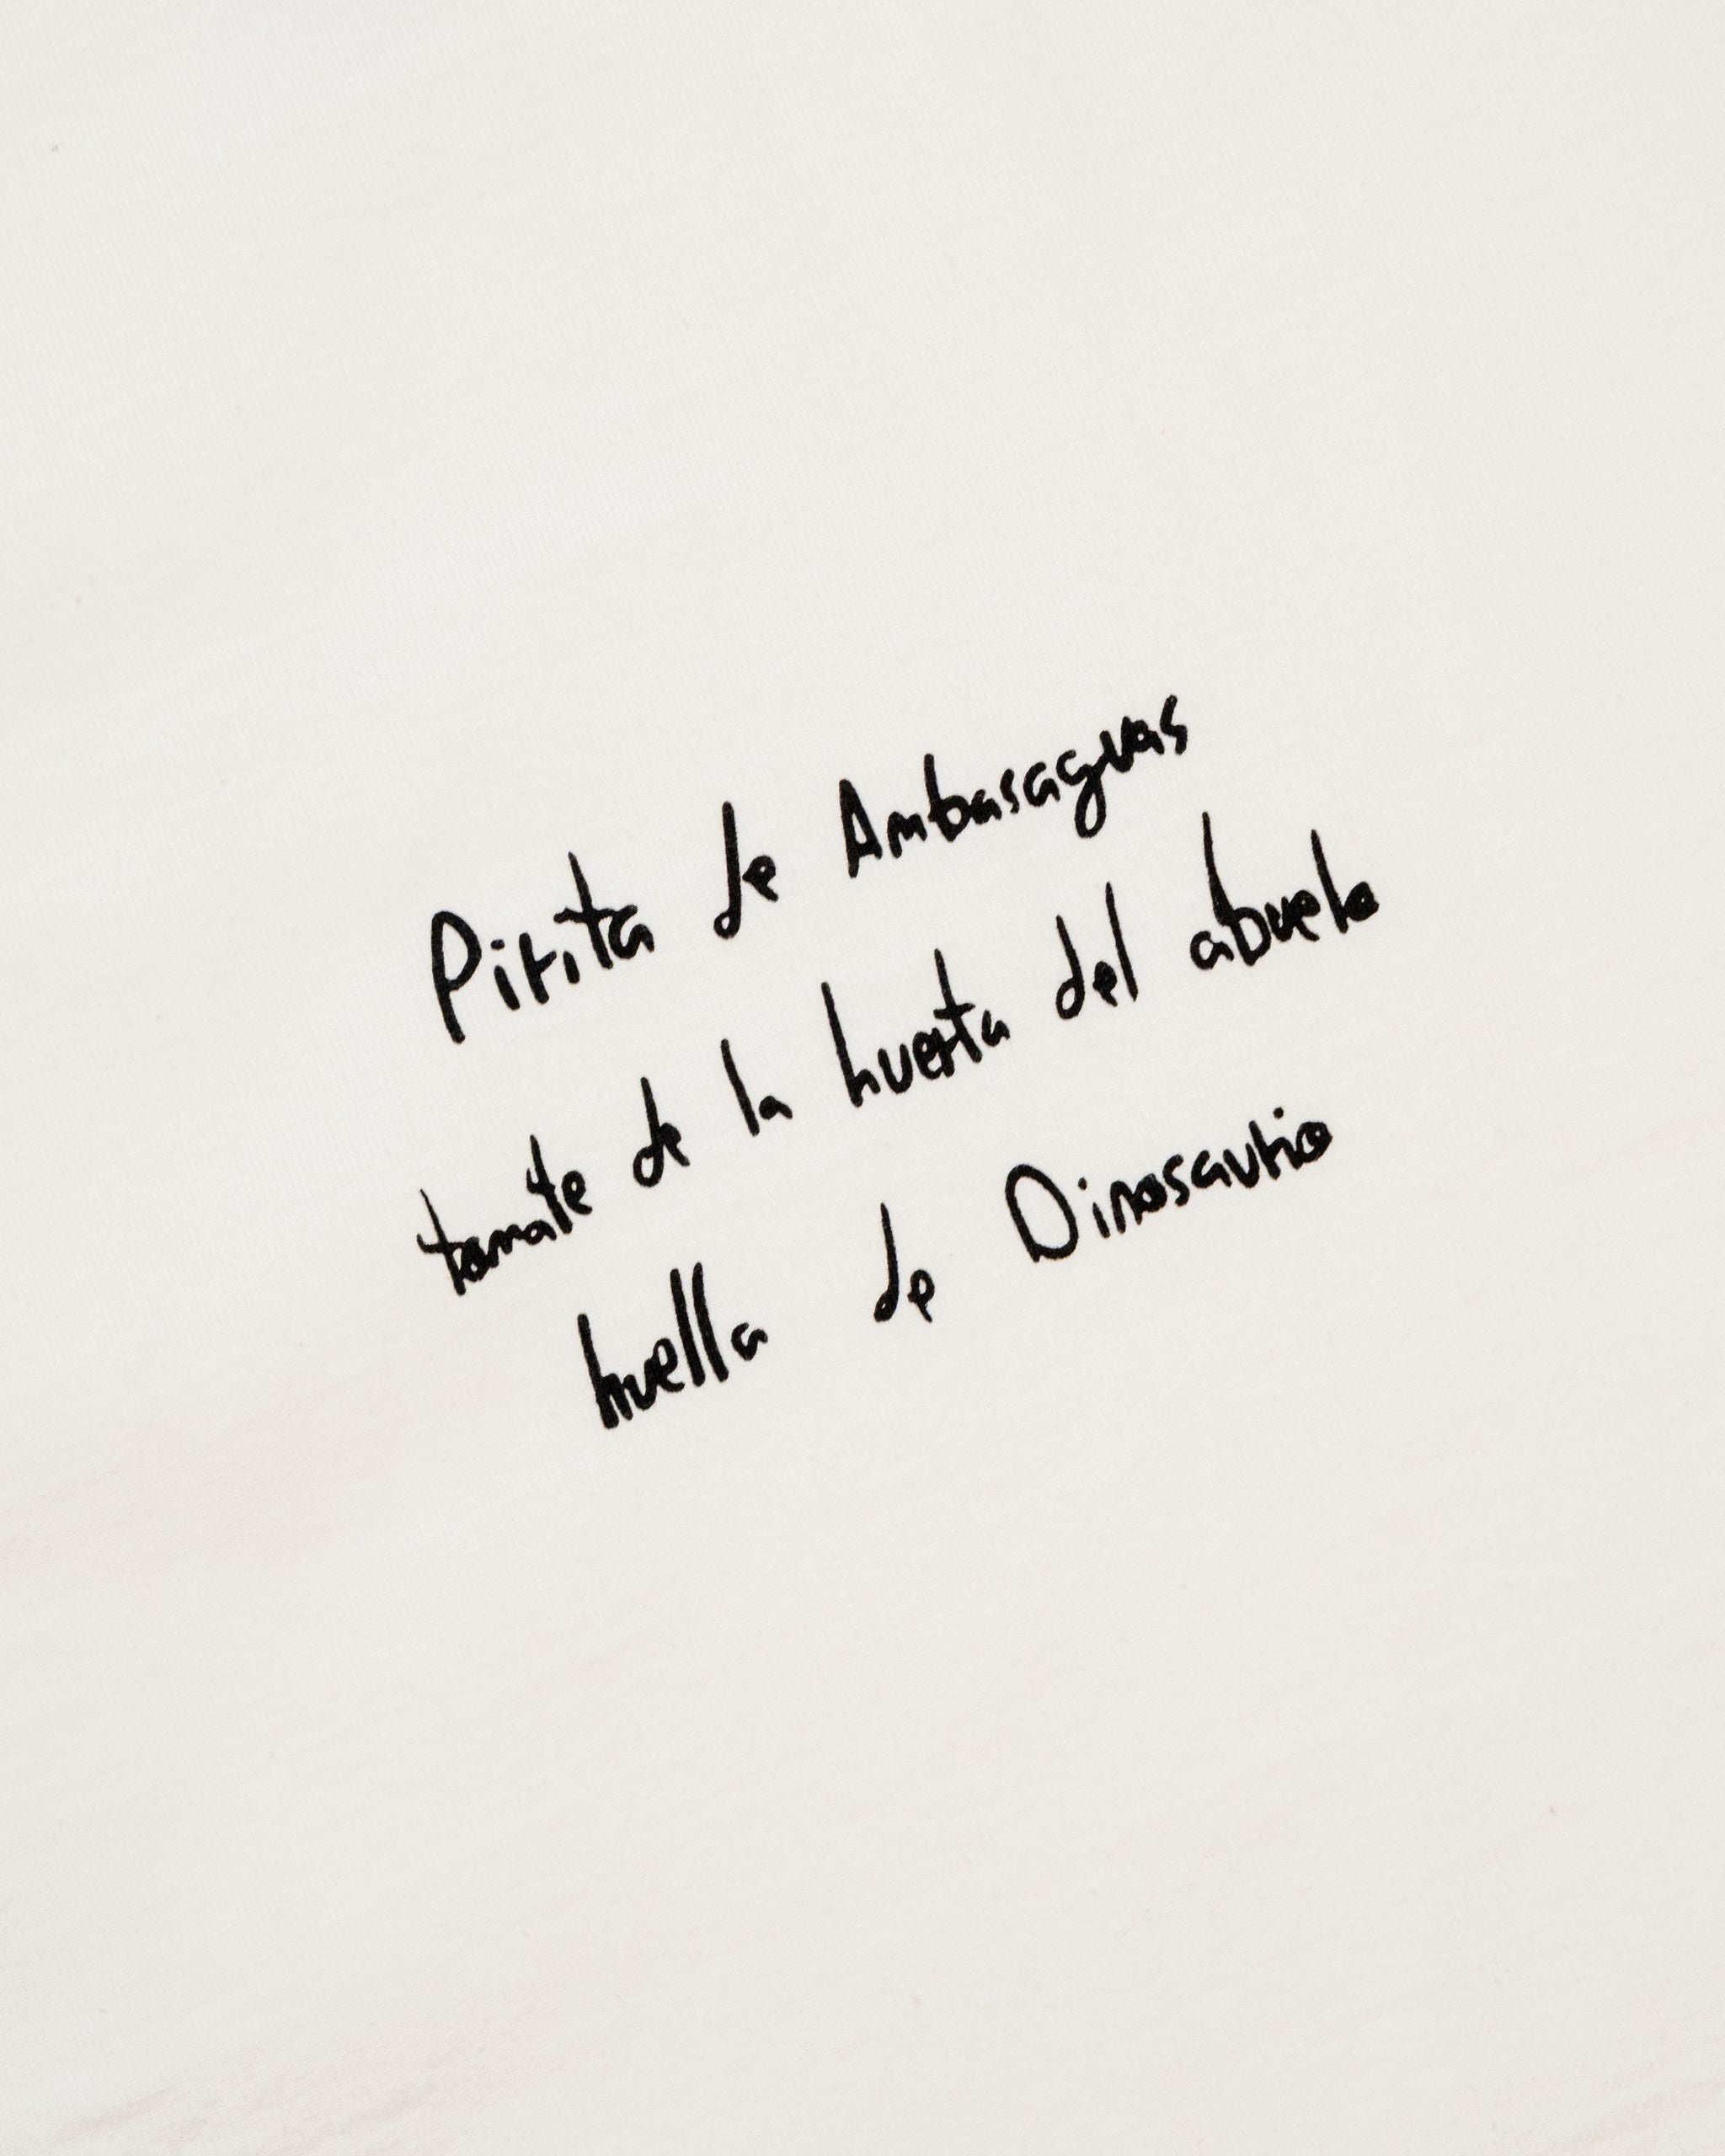 Pirita de Ambasaguas
tomate de la huerta del abuelo
huella de Dinosaurio